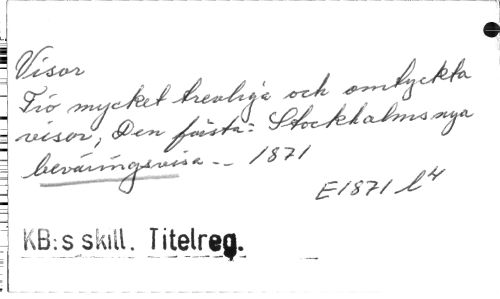 Visor
Tio mycket trevliga och omtyckta
visor, Den första: Stockholms nya
beväringsvisa._ 1871
E1871 l4
KB:s skill. Titelreg.